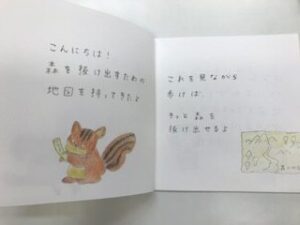 こんにちは!
森を抜け出すための
地図を持ってきたよ
これを見ながら
歩けば、
きっと森を
抜け出せるよ